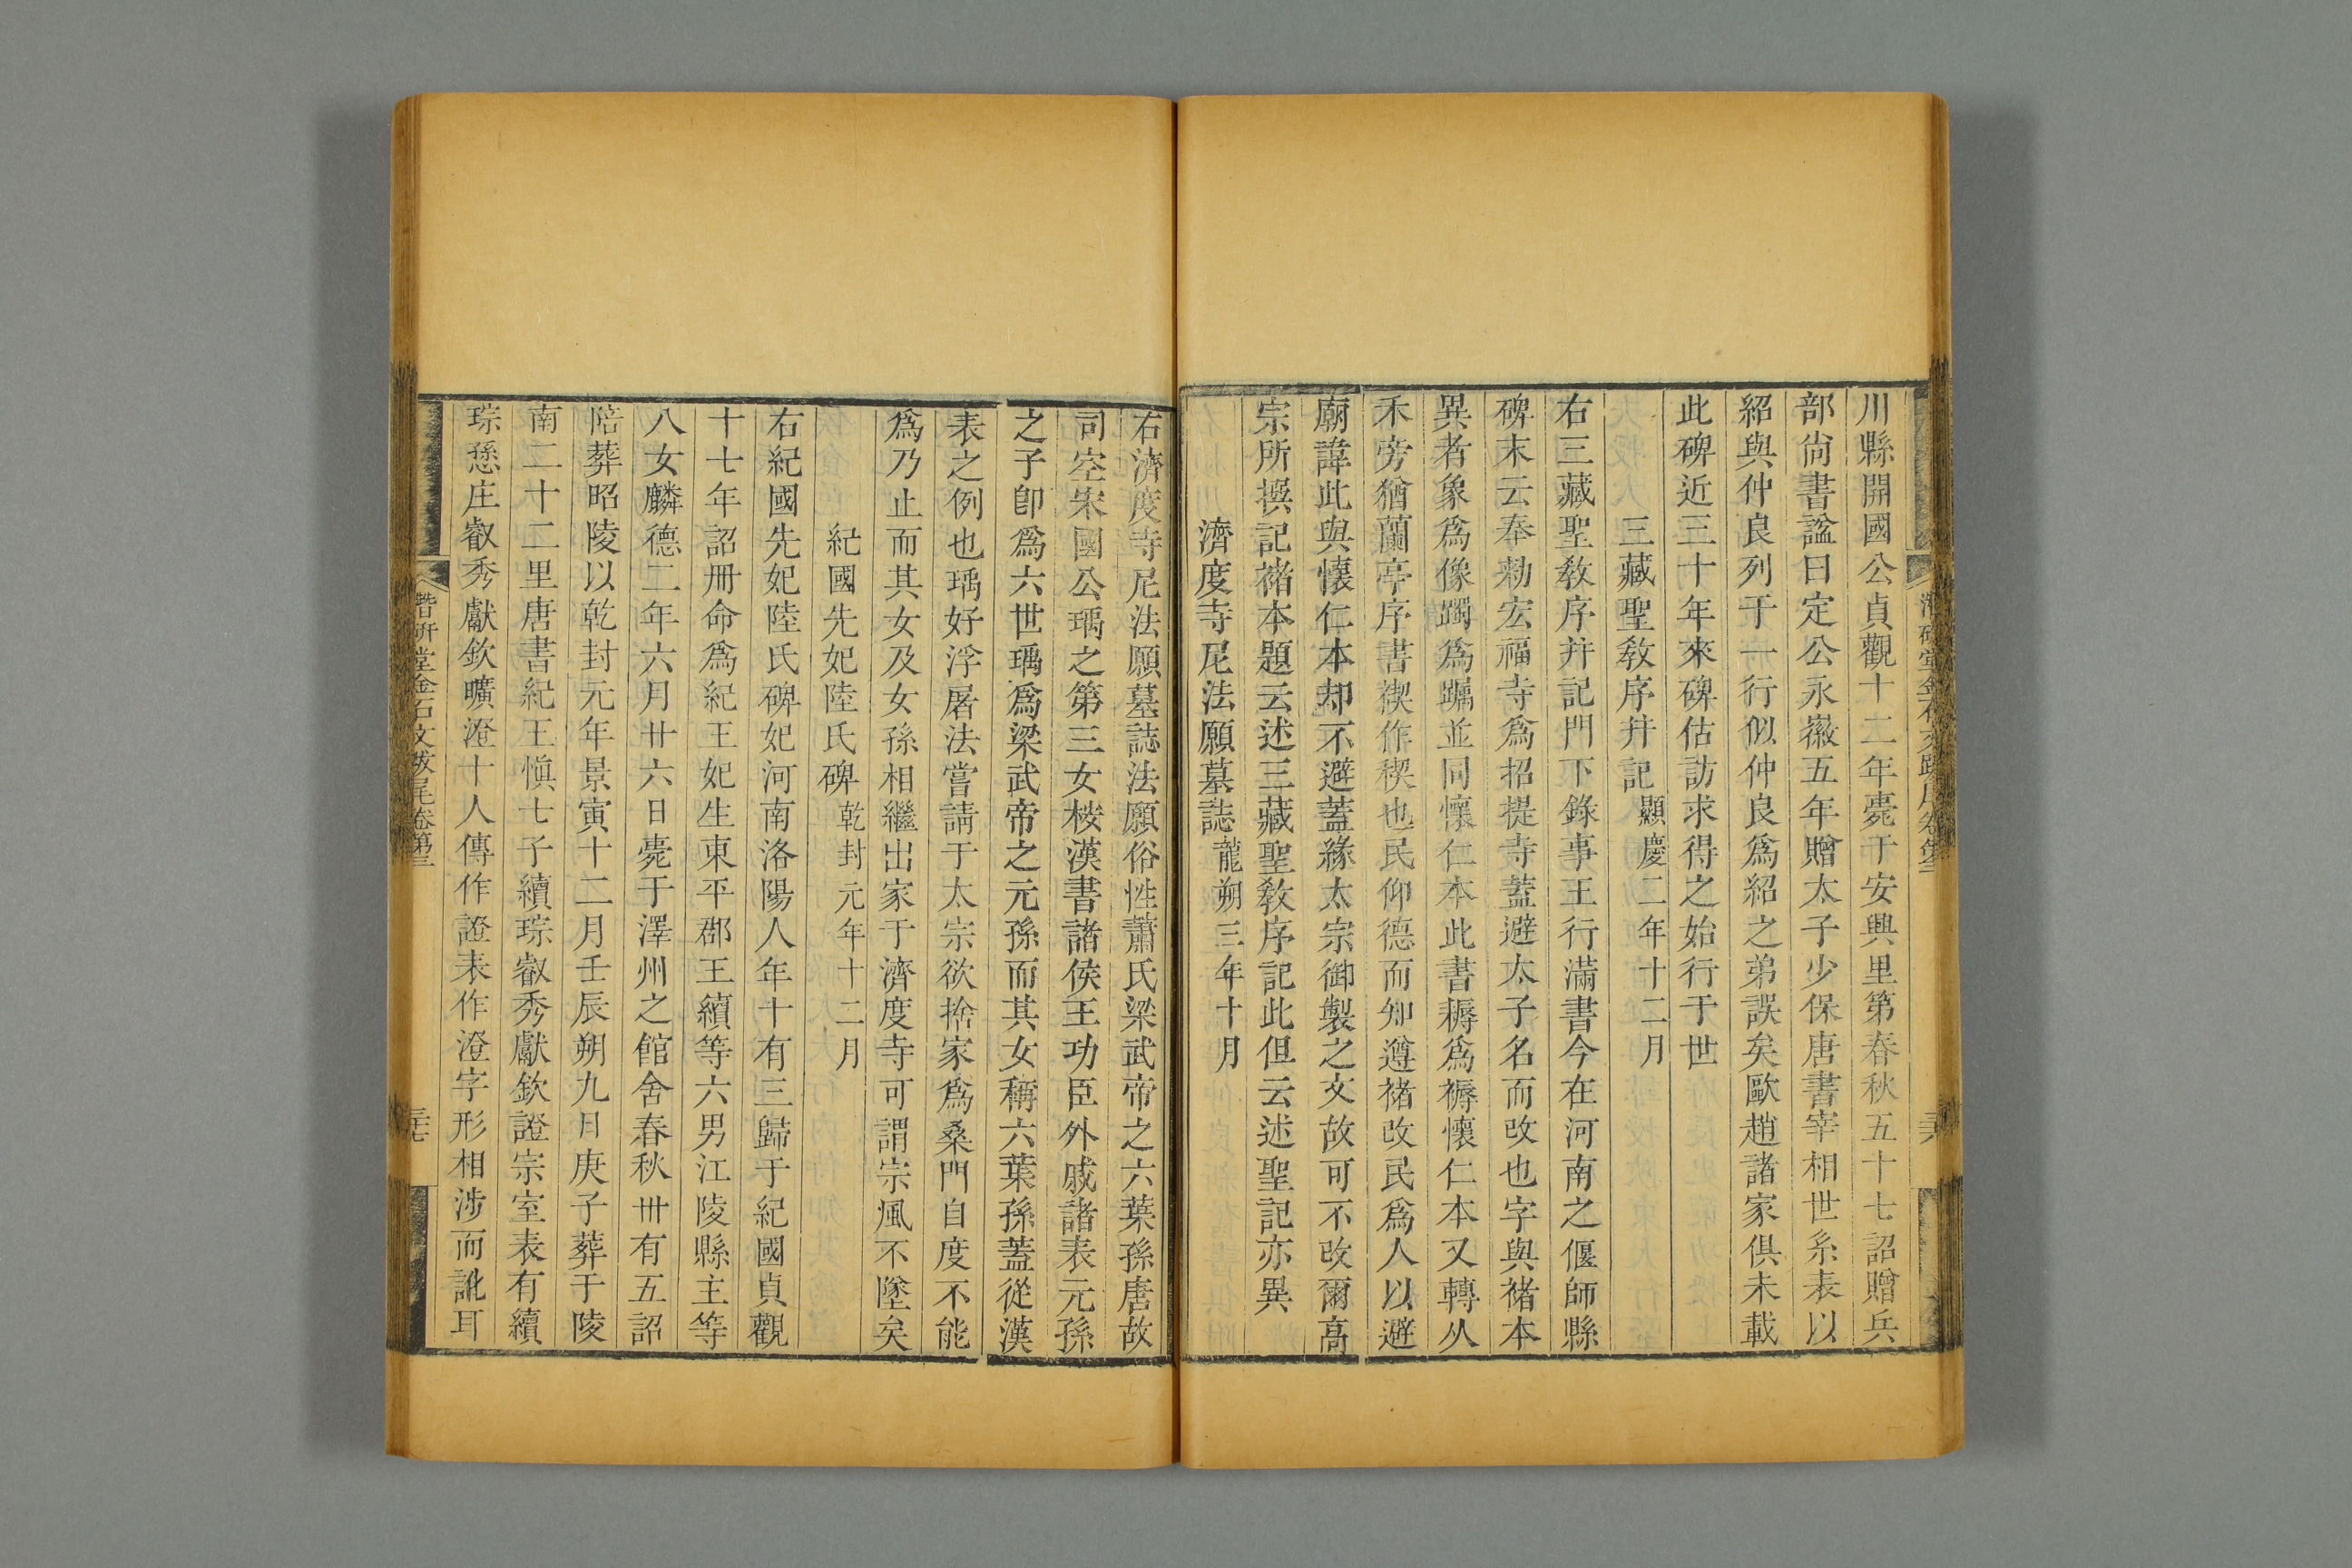 川縣開國公貞觀十二年薨于安興里第春秋五十七詔贈兵
部尙書諡曰定公永徽五年贈太子少保唐書宰相世系表以
紹與仲良列于一行似仲良爲紹之弟誤矣歐趙諸家俱未載
此碑近三十年來碑估訪求得之始行于世
三藏聖敎序幷記顯慶二年十二月
右三藏聖敎序幷記門下錄事王行滿書今在河南之偃師縣
碑末云奉勑宏福寺爲招提寺蓋避太子名而改也字與褚本
異者象爲像躅爲躅並同懷仁本此書耨爲褥懷仁本又轉从
禾旁猶蘭亭序書禊作稧也民仰德而知遵褚改民爲人以避
廟諱此與懷仁本却不避蓋緣太宗御製之文故可不改爾高
宗所撰記褚本題云述三藏聖敎序記此但云述聖記亦異
濟度寺尼法願墓誌龍朔三年十月
右濟度寺尼法願墓誌法願俗性蕭氏梁武帝之六葉孫唐故
司空宋國公瑀之第三女桉漢書諸侯王功臣外戚諸表元孫
之子卽爲六世瑀爲梁武帝之元孫而其女稱六葉孫蓋從漢
表之例也瑀好浮屠法嘗請于太宗欲捨家爲桑門自度不能
爲乃止而其女及女孫相繼出家于濟度寺可謂宗風不墜矣
紀國先妃陸氏碑乾封元年十二月
右紀國先妃陸氏碑妃河南洛陽人年十有三歸于紀國貞觀
十七年詔冊命爲紀王妃生東平郡王續等六男江陵縣主等
八女麟德二年六月廿六日薨于澤州之館舍春秋卅有五詔
陪葬昭陵以乾封元年景寅十二月壬辰朔九日庚子葬于陵
南二十二里唐書紀王愼七子續琮叡秀獻欽證宗室表有續
琮悉庄叡秀獻欽曠澄十人傳作證表作澄字形相涉而訛耳
潛研堂金石文跋尾卷第三
三十七